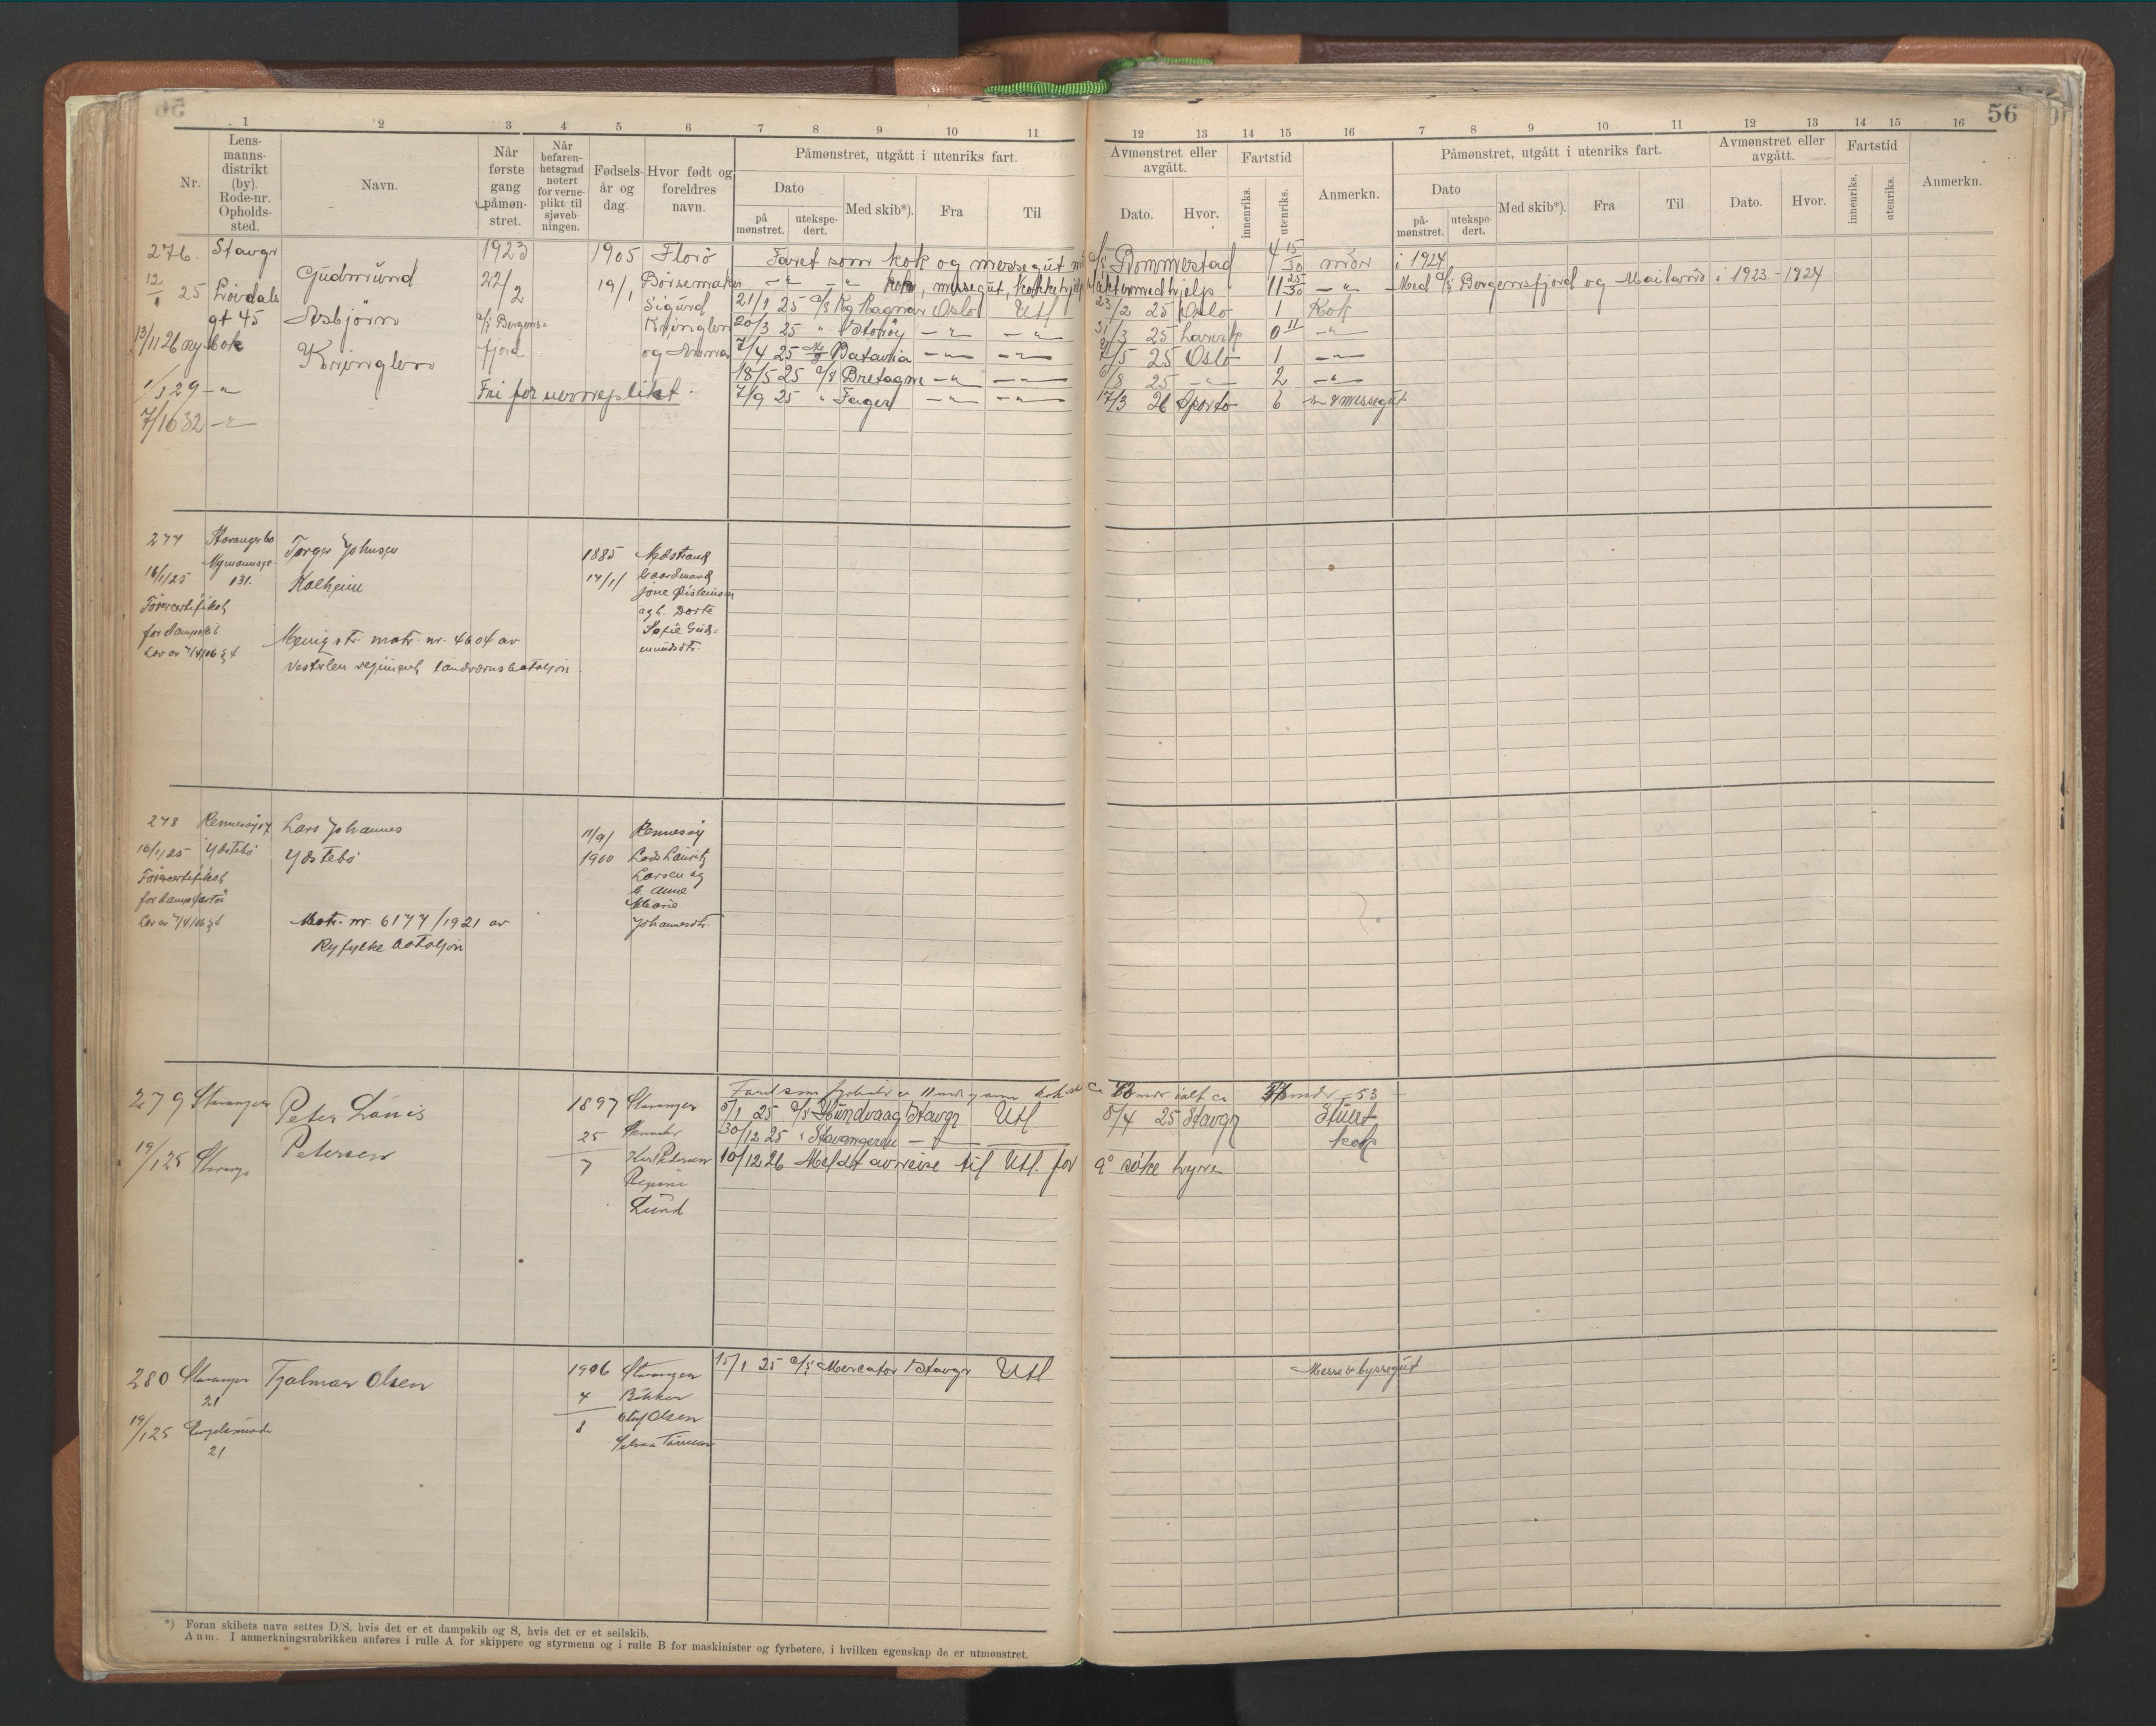 56
1 2 3 4 5 6 7 8 9 10 11
Nr.
Lens-
manns-
distrikt
(by).
Rode-nr.
Opholds-
sted.
Navn.
Når
første
gang
påmøn-
stret.
Når
befaren-
hetsgrad
notert
for verne-
plikt til
sjøveb-
ningen.
Fødsels-
år og
dag.
Hvor født og
foreldres
navn.
Påmønstret, utgått i utenriks fart.
Dato
på
mønstret.
utekspe-
dert.
Med skib*).
Fra
Til
12 13 14 15 16 7 8 9 10 11 12 13 14 15 16
Avmønstret eller
avgått.
Dato.
Hvor.
Fartstid
innenriks.
utenriks.
Anmerkn.
Påmønstret, utgått i utenriks fart.
Dato
på-
mønstret.
utekspe-
dert.
Med skib*).
Fra
Til
Avmønstret eller
avgått.
Dato.
Hvor.
Fartstid
innenriks.
utenriks.
Anmerkn.
276. Stavgr
12/1 25 Lövdals
gt 45
13/11 26 ny bok
1/3 29 -"-
7/10 32 -"-
Gudmund
Asbjörn
Kringlen
1923
22/2
d/s Bergens-
fjord
Fri for verneplikt.
1905
19/1
Florö
Börsemaker
Sigurd
Kringlen
og Anna
Faret som kok og messegut m/ d/s Bommestad 4 15/30 mdr i 1924
-"- -"- kok, messegut, kokkehjelp 11 25/30 -"- Med d/s Bergensfjord og Mailand i 1923-1924
21/1 25 d/s Kg Ragnar Oslo Utl 23/2 25 Oslo 1 Kok
20/3 25 " Storöy -"- -"- 31/3 25 Larvik 0 11 -"-
7/4 25 M/S Batavia -"- -"- /5 25 Oslo 1 -"-
18/5 25 d/s Bretagne -"- -"- /8 25 -"- 2 -"-
7/9 25 " Fager -"- -"- 17/3 26 Sporto 6 -"- messegut
277 Stavanger by
Nymannsgt
16/1/25 131.
Førercertifikat
for dampskib
Lov av 7/4/06 §4
Torger Johnsen
Kalheim
Menig str. matr. nr. 4604 av
Vesterlen regiment landvernsbataljon.
1885
17/1/
Nedstrand
Gaardmand
Jone Øisteinsen
og h. Dorte
Sofie Gud-
mundsdtr
278 Rennesøy
16/1/25 Ydstebø
Førercertifikat
for dampfartøi
Lov av 7/4/06 §4
Lars Johannes
Ydstebø
Matr. nr. 6177/1921 av
Ryfylke bataljon
11/9/
1900
Rennesøy
Lods Lauritz
Larsen og
h. Anne
Marie
Johannesdtr.
279 Stavanger
19/1 25
Peter Louis
Petersen
1897
25
7
Stavanger
Karl Petersen
Regine
Lund
Faret som fyrböter 11 mdr
5/1 25 d/s Hundvaag Stavgr Utl 8/4 25 Stavgr Stuert
30/12 25 " Stavangeren -"- kok
10/12 26 Meldt avreise til Utl. for å söke hyre
280 Stavanger
21
19/1 25
21
Hjalmar Olsen
1906
4
8
Stavanger
Bökker
Olaf Olsen
15/1 25 d/s Mercator Stavgr Utl Messe & byssegut
*) Foran skibets navn settes D/S, hvis det er et dampskib og S, hvis det er et seilskib.
Anm. I anmerkningsrubrikken anføres i rulle A for skippere og styrmenn og i rulle B for maskinister og fyrbøtere, i hvilken egenskap de er utmønstret.